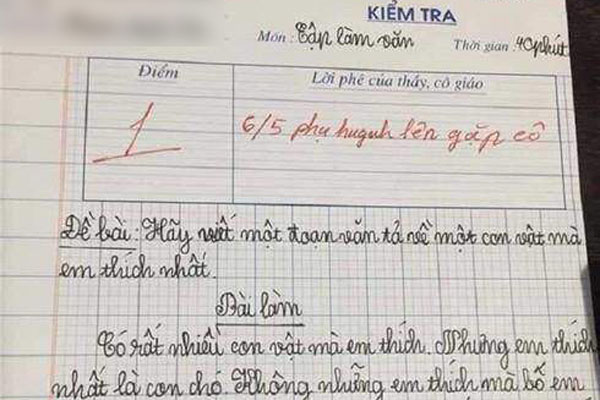 KIỂM TRA
Môn: Tập làm văn Thời gian: 40 phút
Điểm Lời phê của thầy, cô giáo
1 6/5 phụ huynh lên gặp cô
Đề bài: Hãy viết một đoạn văn tả về một con vật mà
em thích nhất.
Bài làm
Có rất nhiều con vật mà em thích. Nhưng em thích
nhất là con chó. Không những em thích mà bố em